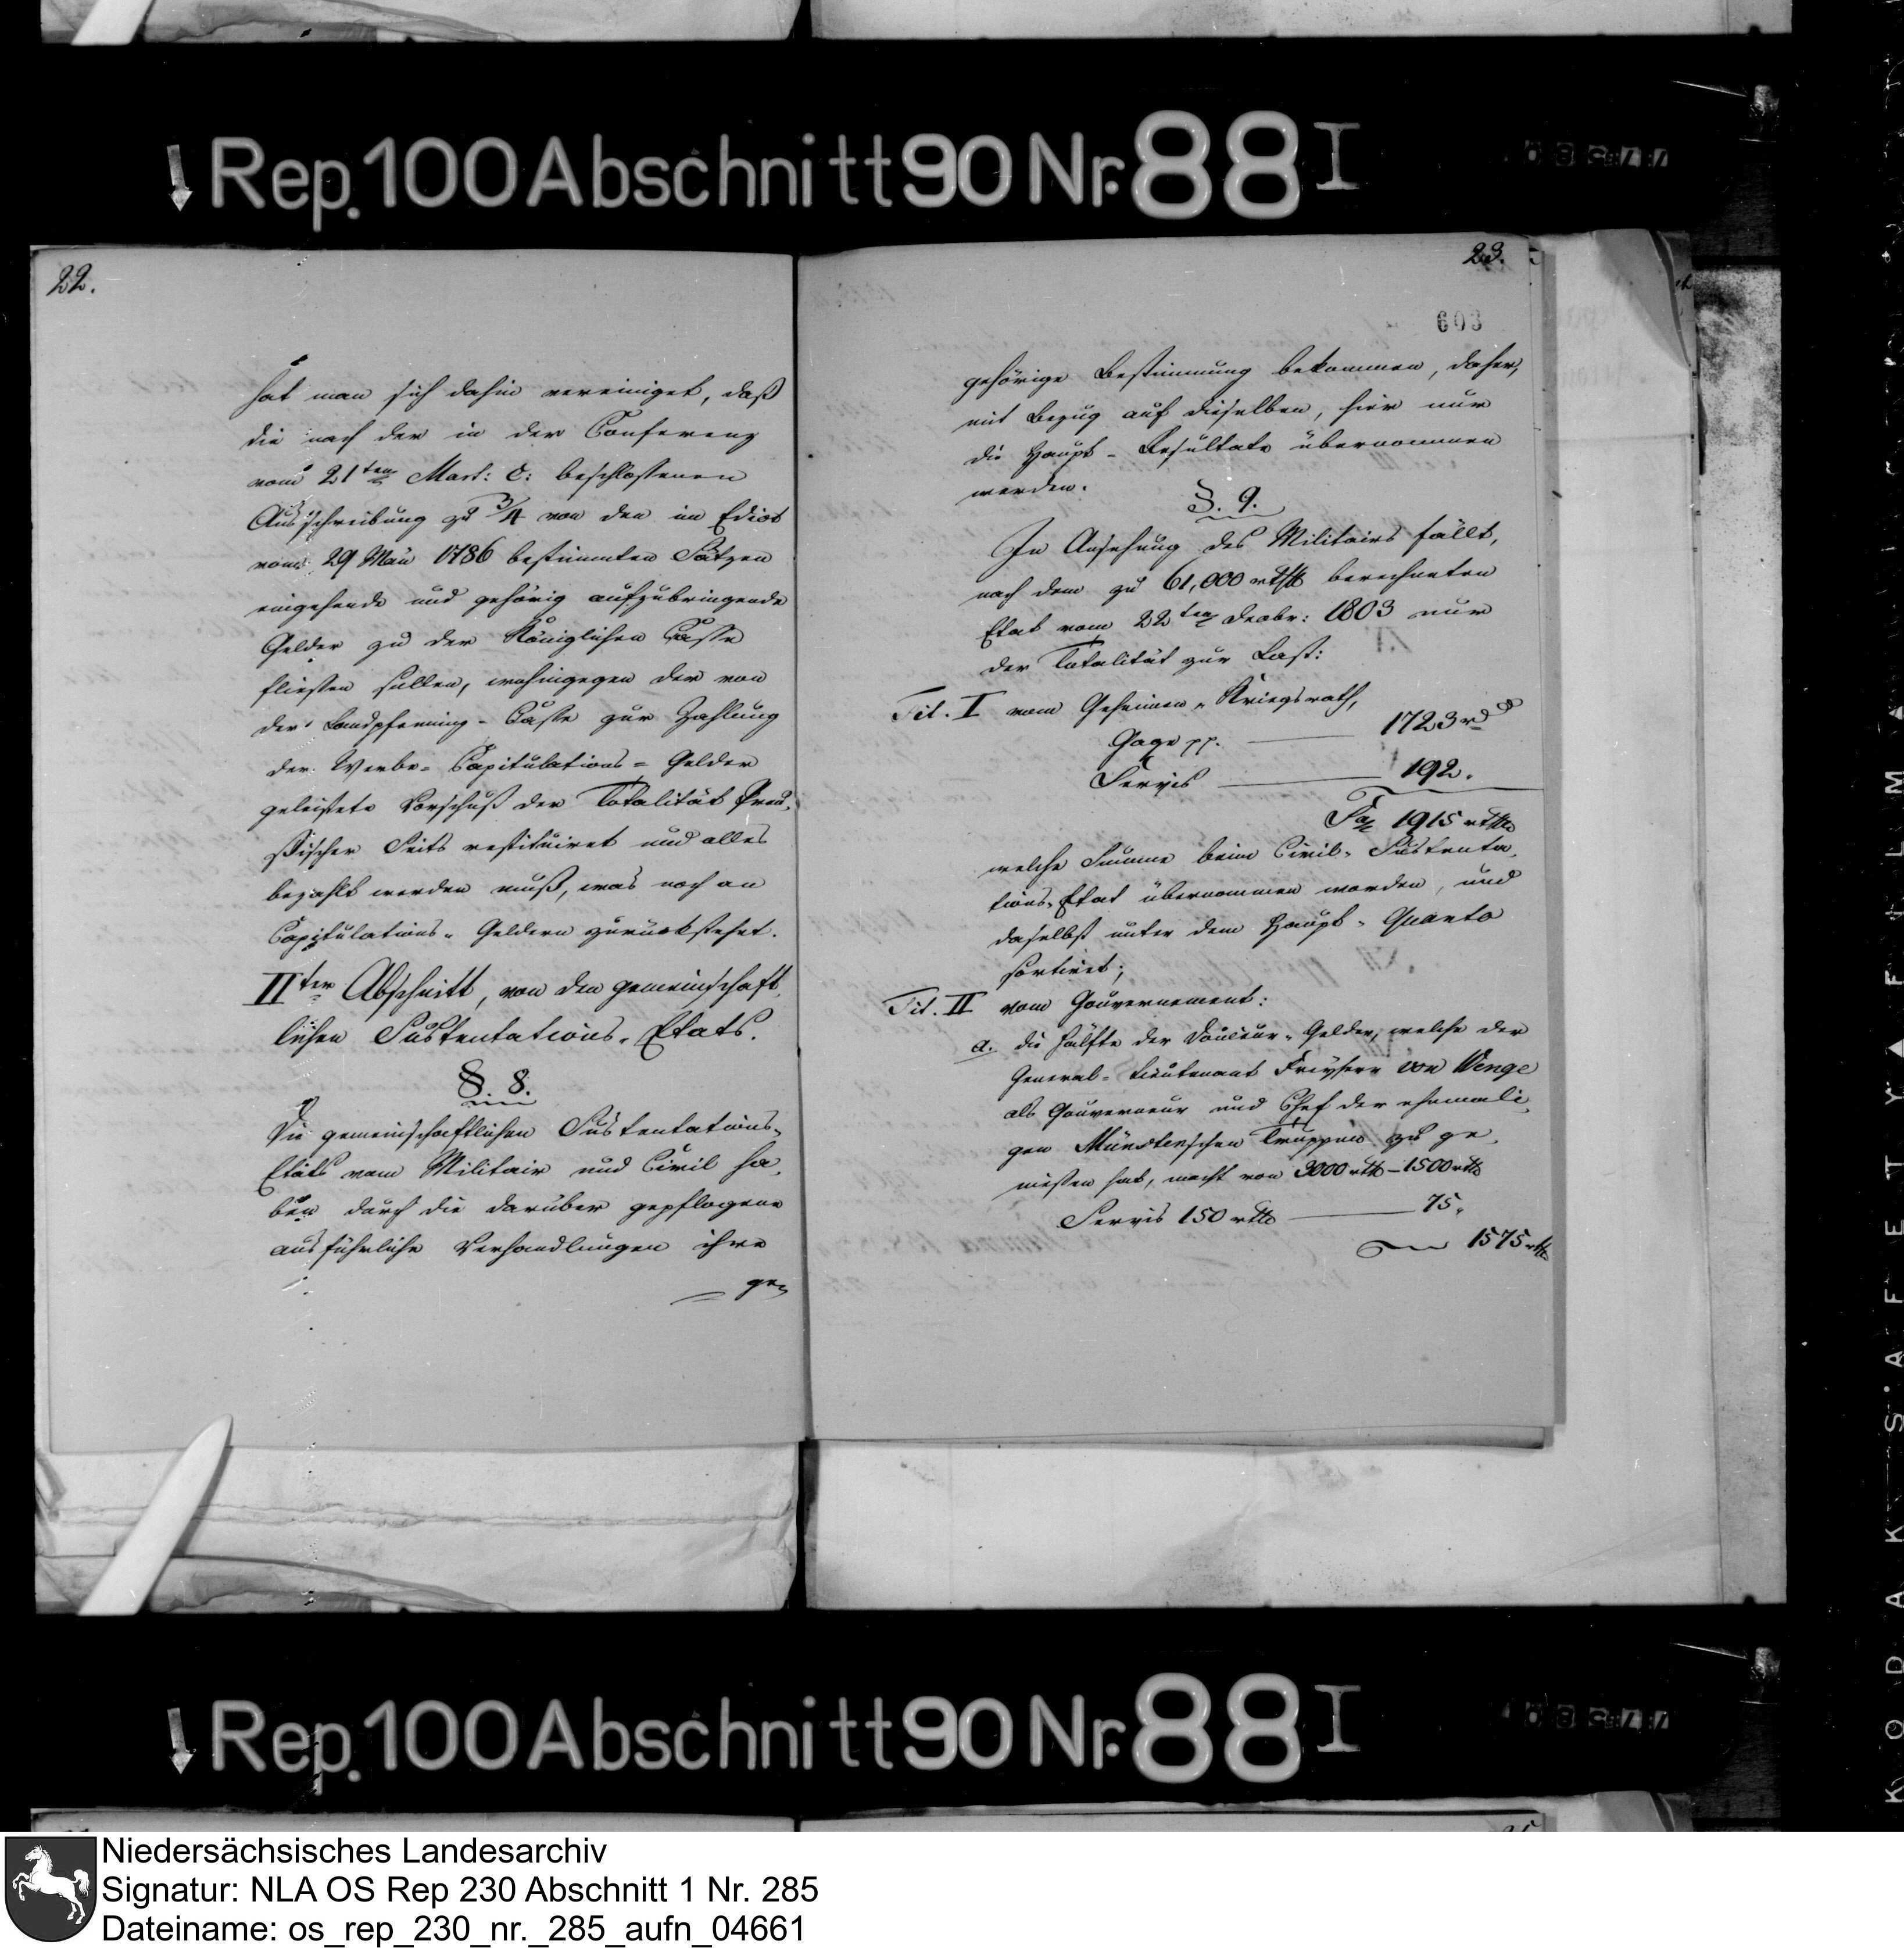 Rep. 100 Abschnitt 90 Nr. 88 I
22.
hat man sich dahin vereiniget, daß
die nach der in der Conferenz
vom 21ten Mart: c: beschlossenen
Ausschreibung zu 3/4 von den im Edict
vom 29 Maii 1786 bestimmten Sätzen
eingehende und gehörig aufzubringende
Gelder zu der Königlichen Casse
fliessen sollen, wohingegen der von
der Landpfenning-Casse zur Zahlung
der Werbe-Capitulations-Gelder
geleistete Vorschuß der Totalität Preu-
ßischer Seits restituiret und alles
bezahlt werden muß, was noch an
Capitulations-Geldern zurücksteht.
IIter Abschnitt, von den gemeinschaft-
lichen Sustentations-Etats.
§. 8.
Die gemeinschaftlichen Sustentations-
Etats vom Militair und Civil ha-
ben durch die darüber gepflogene
ausführliche Verhandlungen ihre
ge-
23.
603
gehörige Bestimmung bekommen, daher,
mit Bezug auf dieselben, hier nur
die Haupt-Resultate übernommen
werden.
§. 9.
In Ansehung des Militairs fällt,
nach dem zu 61,000 rthlr berechneten
Etat vom 22ten Decbr: 1803 nur
der Totalität zur Last:
Tit. I vom Geheimen-Kriegsrath,
Gage pp. 1723 rd
Servis 192.
Sa. 1915 rthlr
welche Summe beim Civil-Sustenta-
tions-Etat übernommen worden, und
daselbst unter dem Haupt-Quanto
sortiret;
Tit. II vom Gouvernement:
a. die Hälfte der Douceur-Gelder, welche der
General-Lieutenant Freyherr von Wenge
als Gouverneur und Chef der ehemali-
gen Münsterschen Truppen zu ge-
niessen hat, macht von 3000 rthlr - 1500 rthlr
Servis 150 rthlr 75.
1575 rthlr
Rep. 100 Abschnitt 90 Nr. 88 I
Niedersächsisches Landesarchiv
Signatur: NLA OS Rep 230 Abschnitt 1 Nr. 285
Dateiname: os_rep_230_nr._285_aufn_04661